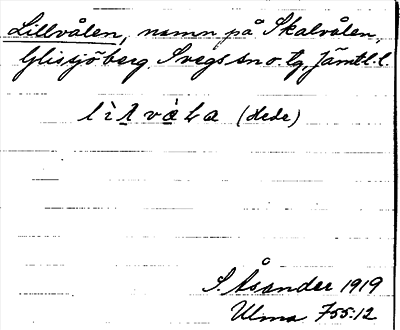 Lillvålen, namn på Skalvålen,
Glissjöberg, Svegs sn o. tg, Jämtl. l.
lìlvàla (Hede)
S. Åsander 1919
Ulma 755:12